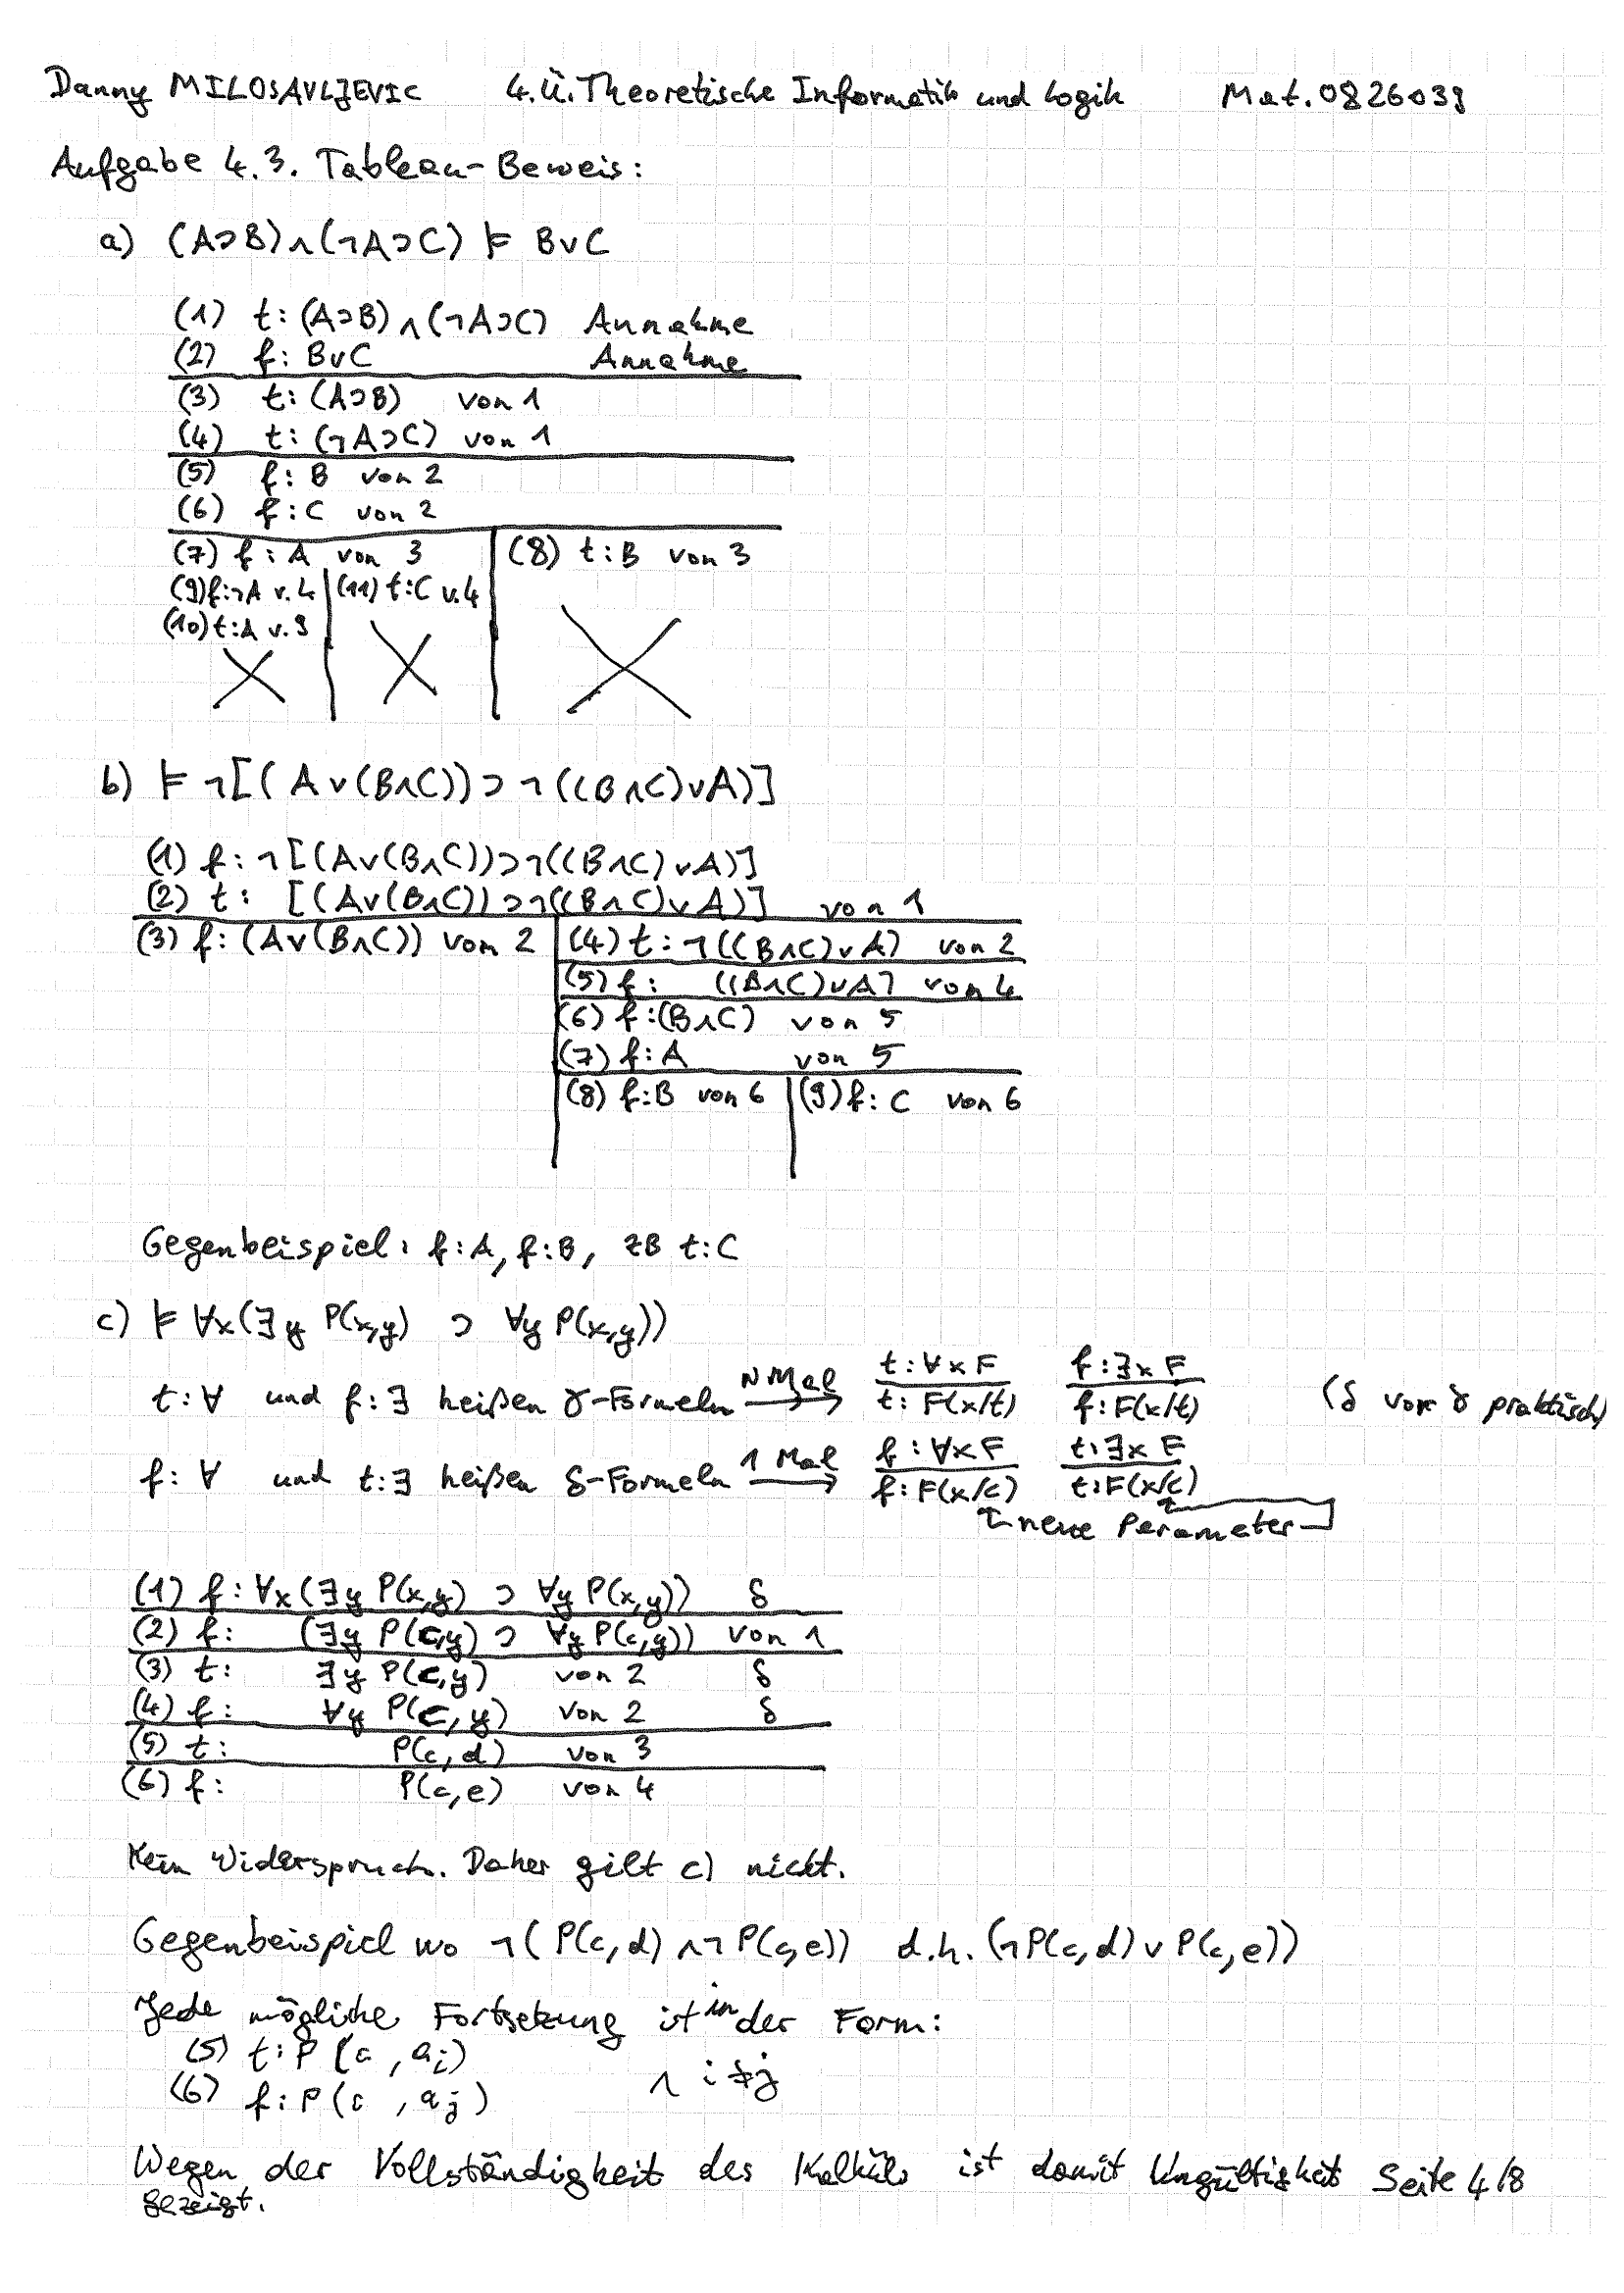 Danny MILOSAVLJEVIC 4.Ü.Theoretische Informatik und Logik Mat.0826039
Aufgabe 4.3. Tableau-Beweis:
a) (A⊃B)∧(¬A⊃C) ⊨ B∨C
(1) t: (A⊃B)∧(¬A⊃C) Annahme
(2) f: B∨C Annahme
(3) t: (A⊃B) von 1
(4) t: (¬A⊃C) von 1
(5) f: B von 2
(6) f: C von 2
(7) f: A von 3 (8) t: B von 3
(9) f:¬A v.4 (11) t:C v.4
(10) t:A v.9
b) ⊨ ¬[(A∨(B∧C))⊃¬((B∧C)∨A)]
(1) f: ¬[(A∨(B∧C))⊃¬((B∧C)∨A)]
(2) t: [(A∨(B∧C))⊃¬((B∧C)∨A)] von 1
(3) f: (A∨(B∧C)) von 2 (4) t: ¬((B∧C)∨A) von 2
(5) f: ((B∧C)∨A) von 4
(6) f:(B∧C) von 5
(7) f:A von 5
(8) f:B von 6 (9) f: C von 6
Gegenbeispiel: f:A, f:B, zB t:C
c) ⊨ ∀x(∃y P(x,y) ⊃ ∀y P(x,y))
t:∀ und f:∃ heißen γ-Formeln N Mal → t:∀x F / t: F(x/t) f:∃x F / f:F(x/t) (δ vor γ praktisch)
f:∀ und t:∃ heißen δ-Formeln 1 Mal → f:∀x F / f:F(x/c) t:∃x F / t:F(x/c)
neue Parameter
(1) f: ∀x(∃y P(x,y) ⊃ ∀y P(x,y)) δ
(2) f: (∃y P(c,y) ⊃ ∀y P(c,y)) von 1
(3) t: ∃y P(c,y) von 2 δ
(4) f: ∀y P(c,y) von 2 δ
(5) t: P(c,d) von 3
(6) f: P(c,e) von 4
Kein Widerspruch. Daher gilt c) nicht.
Gegenbeispiel wo ¬(P(c,d) ∧¬P(c,e)) d.h. (¬P(c,d) ∨ P(c,e))
Jede mögliche Fortsetzung ist in der Form:
(5) t:P(c, ai)
(6) f:P(c, aj) ∧ i≠j
Wegen der Vollständigkeit des Kalküls ist damit Ungültigkeit Seite 4/8
gezeigt.